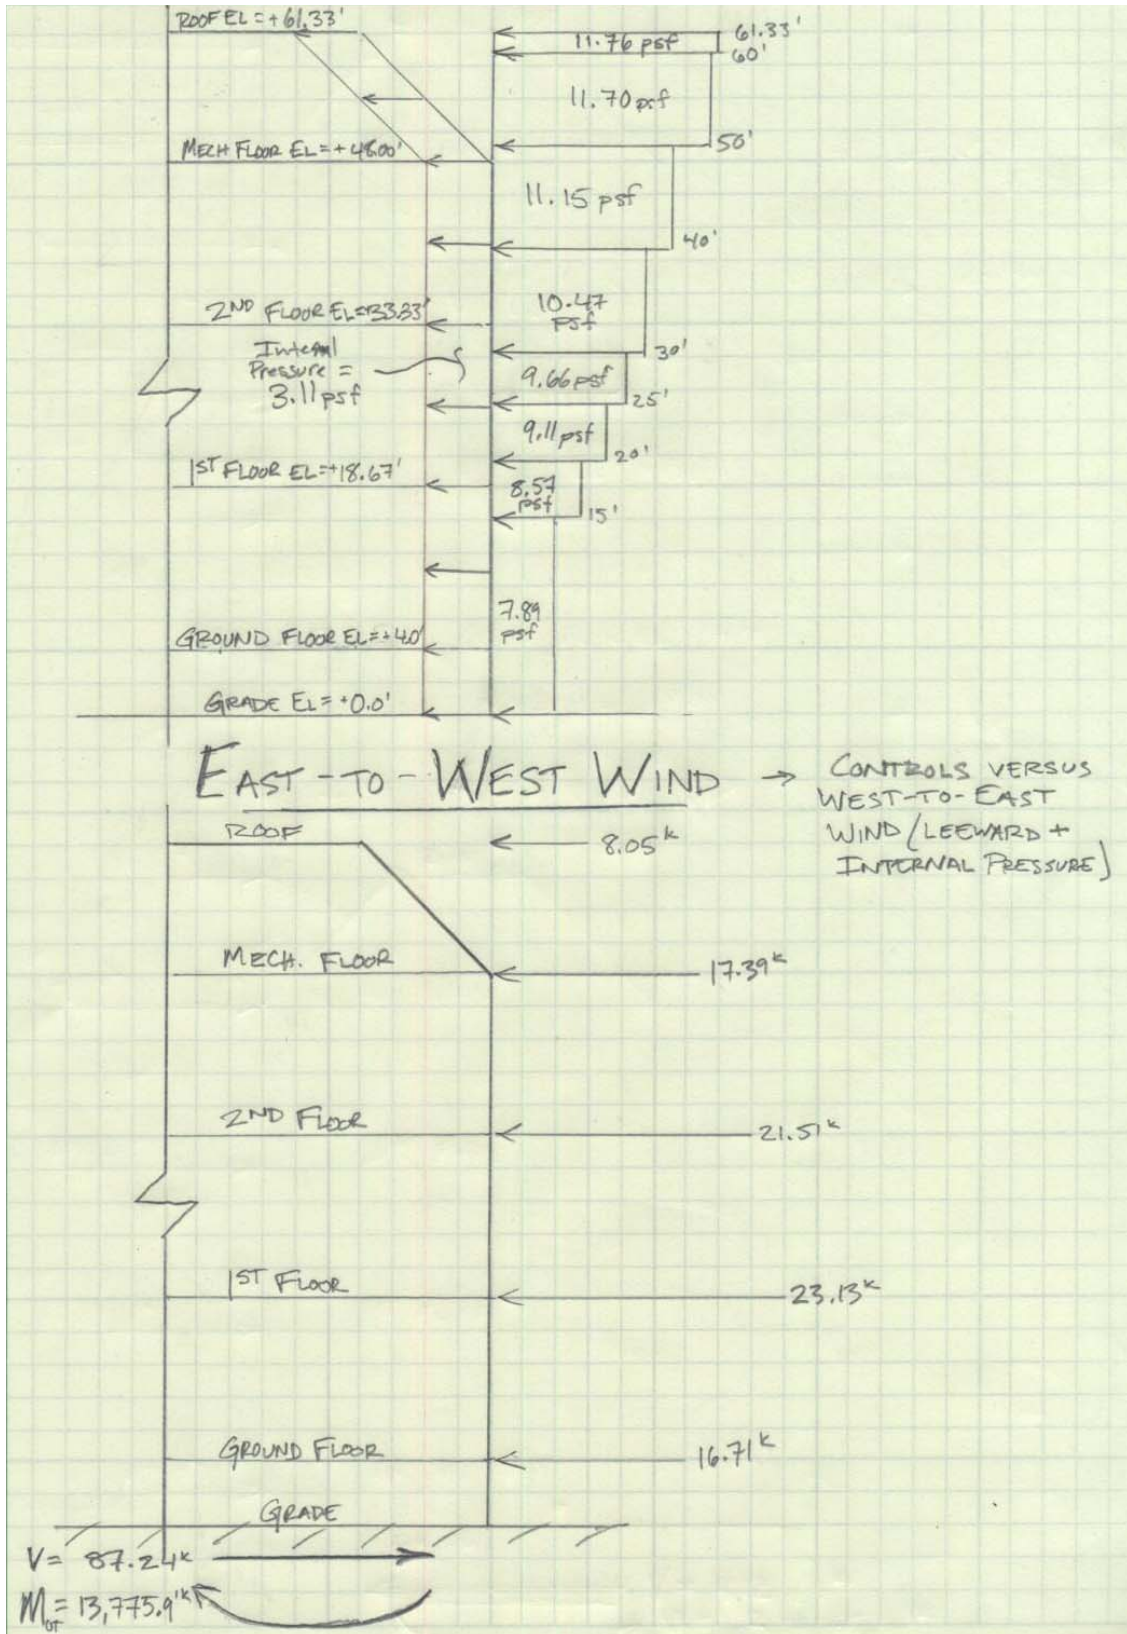 ROOF EL = +61.33'
61.33'
11.76 psf
60'
11.70 psf
MECH FLOOR EL = +48.00'
50'
11.15 psf
40'
2ND FLOOR EL=+33.33'
10.47
psf
Internal
Pressure =
3.11 psf
30'
9.66 psf
25'
9.11 psf
20'
1ST FLOOR EL=+18.67'
8.57
psf
15'
7.89
psf
GROUND FLOOR EL=+4.0'
GRADE EL = +0.0'
EAST-TO-WEST WIND → CONTROLS VERSUS
WEST-TO-EAST
WIND (LEEWARD +
INTERNAL PRESSURE)
ROOF
8.05k
MECH. FLOOR
17.39k
2ND FLOOR
21.51k
1ST FLOOR
23.13k
GROUND FLOOR
16.71k
GRADE
V = 87.24k
MOT = 13,775.9'k